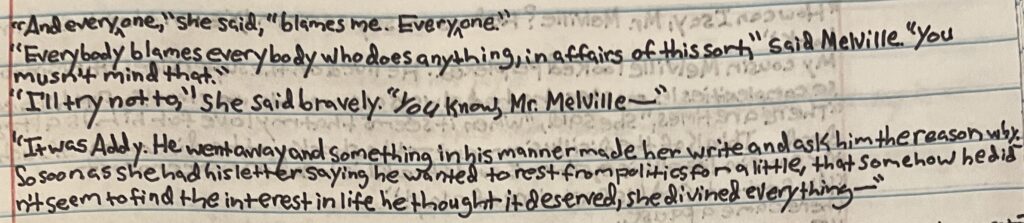 "And everyone," she said, "blames me. Everyone."
"Everybody blames everybody who does anything, in affairs of this sort," said Melville. "You
musn't mind that."
"I'll try not to," she said bravely. "You know, Mr. Melville—"
"It was Addy. He went away and something in his manner made her write and ask him the reason why.
So soon as she had his letter saying he wanted to rest from politics for a little, that somehow he did
n't seem to find the interest in life he thought it deserved, she divined everything—"